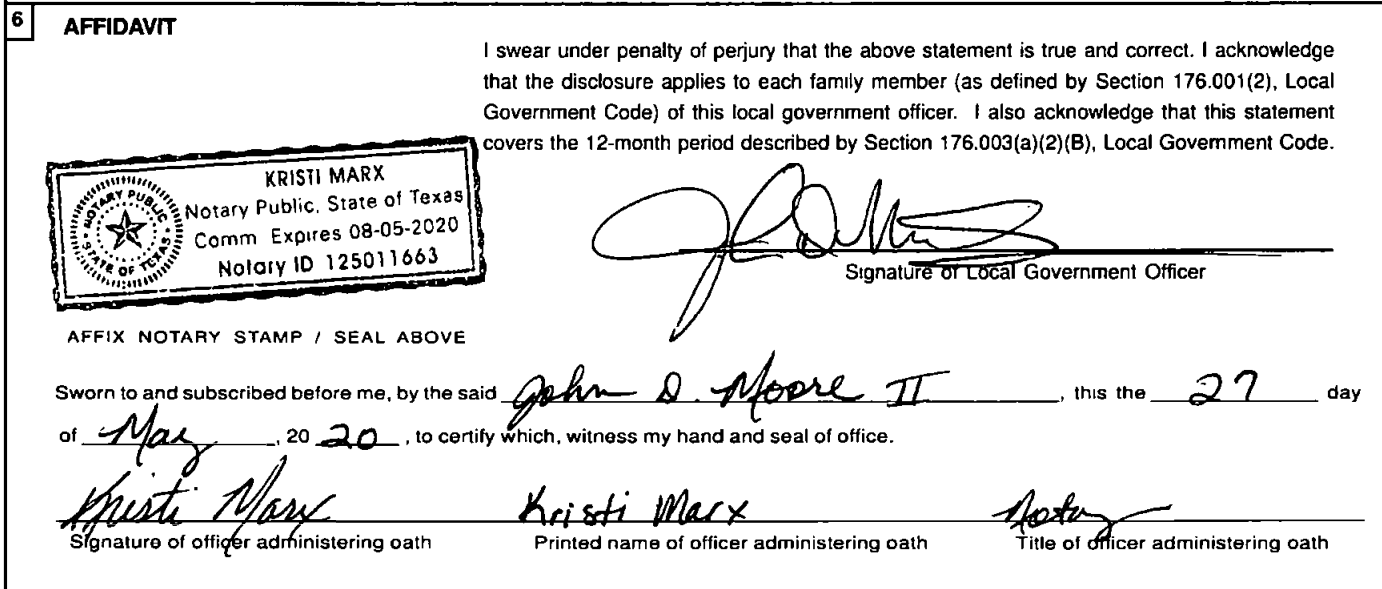 6 AFFIDAVIT
I swear under penalty of perjury that the above statement is true and correct. I acknowledge
that the disclosure applies to each family member (as defined by Section 176.001(2), Local
Government Code) of this local government officer. I also acknowledge that this statement
covers the 12-month period described by Section 176.003(a)(2)(B), Local Government Code.
KRISTI MARX
Notary Public, State of Texas
Comm Expires 08-05-2020
Notary ID 125011663
NOTARY PUBLIC
STATE OF TEXAS
Signature of Local Government Officer
AFFIX NOTARY STAMP / SEAL ABOVE
Sworn to and subscribed before me, by the said John D. Moore II, this the 27 day
of May, 20 20, to certify which, witness my hand and seal of office.
Kristi Marx Kristi Marx Notary
Signature of officer administering oath Printed name of officer administering oath Title of officer administering oath